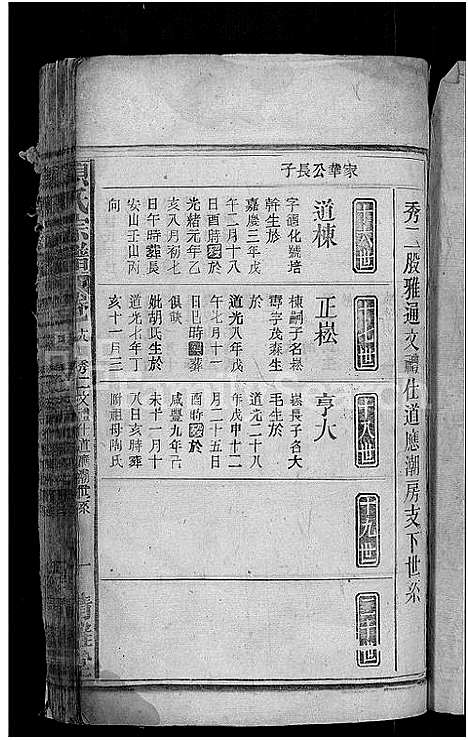 秀二股雅通文禮仕道應潮房支下世系
十六世
家華公長子
道棟
字德化號培
幹生於
嘉慶三年戊
午二月十八
日酉時歿於
光緒元年乙
亥八月初七
日午時葬長
安山壬山丙
向
十七世
正崧
棟嗣子名崧
齊字茂森生
於
道光八年戊
午七月十一
日巳時
俱缺
妣胡氏生於
道光七年丁
亥十一月三
十八世
亨大
崧長子名大
毛生於
道光二十八
年戊申十二
月二十五日
酉時歿於
咸豐九年己
未十一月十
八日亥時葬
附祖母陶氏
十九世
二十世
氏宗譜
秀二支禮仕道應潮世系
一